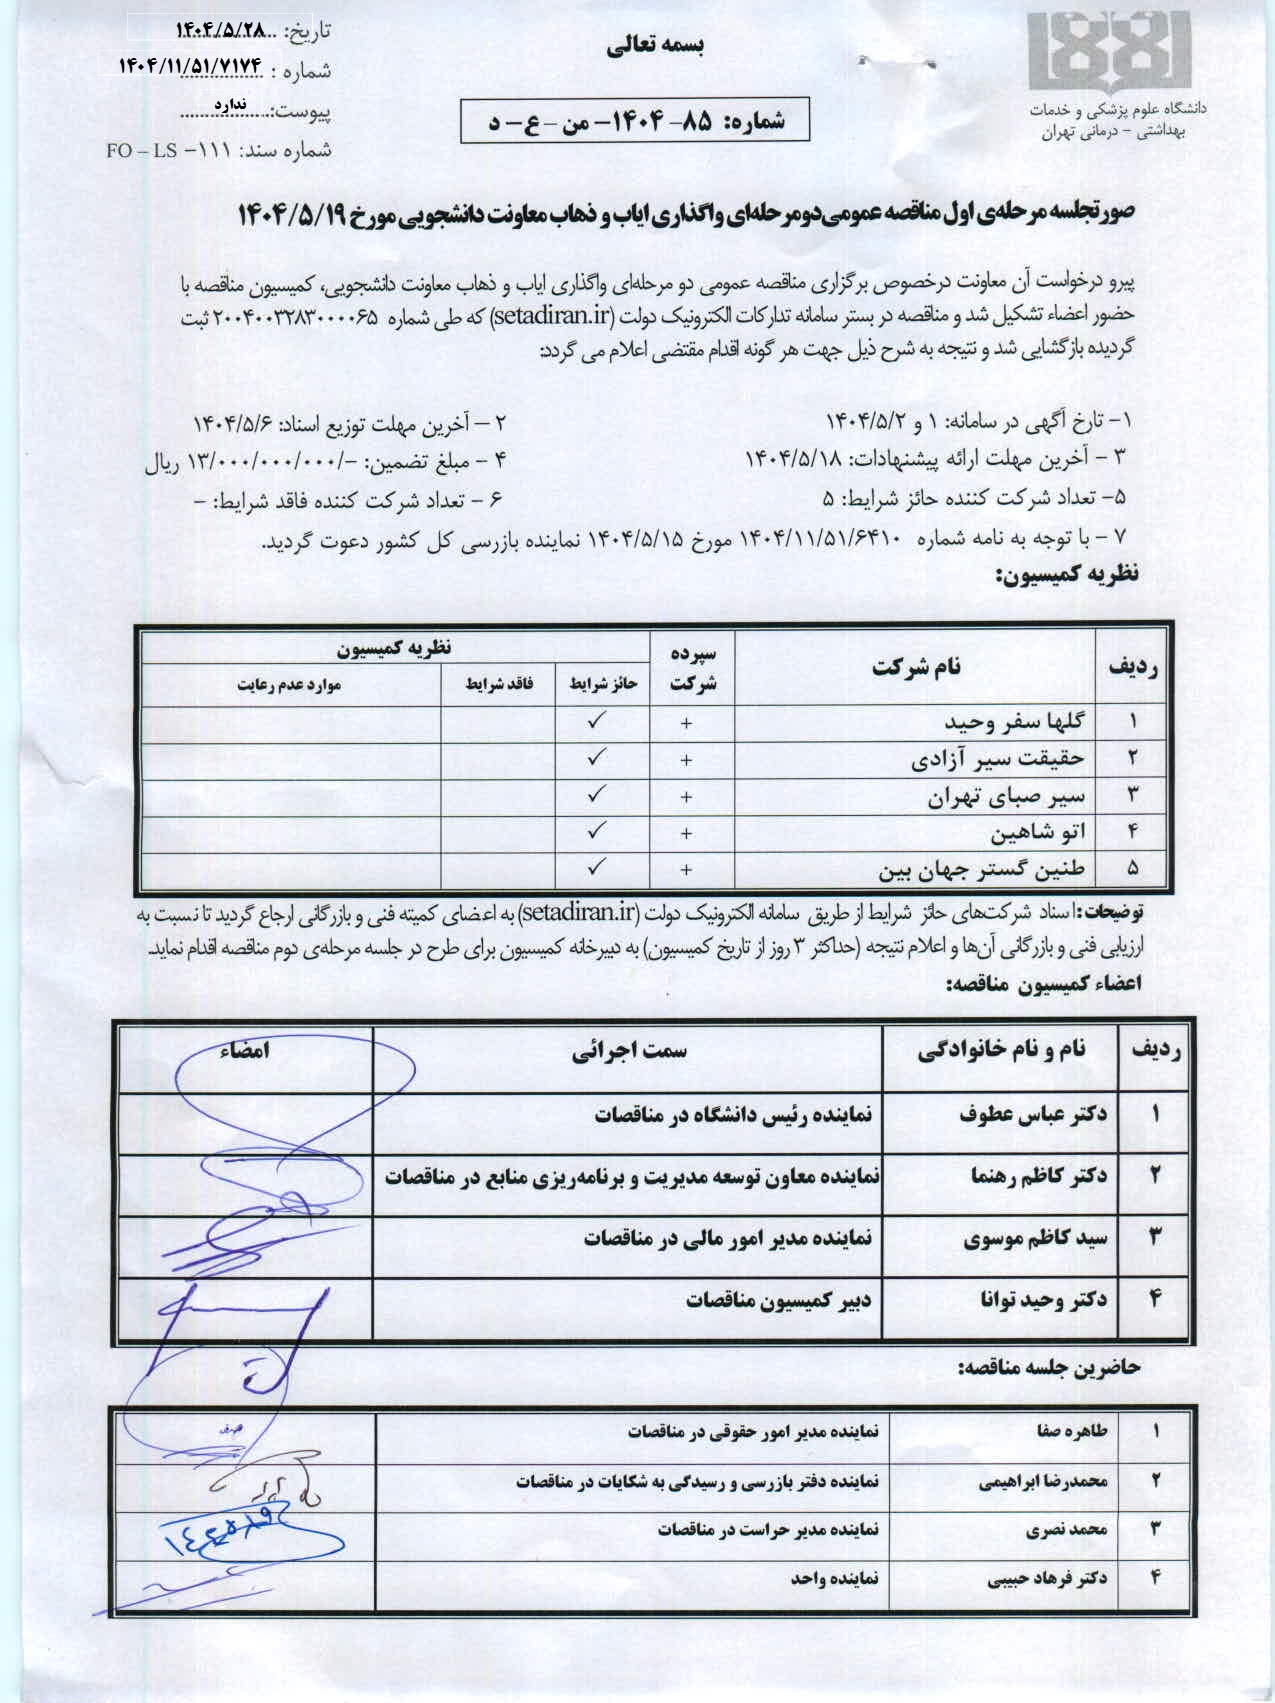 بسمه تعالی
تاریخ: ۱۴۰۴/۵/۲۸
شماره : ۱۴۰۴/۱۱/۵۱/۷۱۷۴
پیوست: ندارد
شماره سند: FO – LS –۱۱۱
دانشگاه علوم پزشکی و خدمات
بهداشتی – درمانی تهران
شماره: ۸۵- ۱۴۰۴- من –ع- د
صورتجلسه مرحله‌ی اول مناقصه عمومی دومرحله‌ای واگذاری ایاب و ذهاب معاونت دانشجویی مورخ ۱۴۰۴/۵/۱۹
پیرو درخواست آن معاونت درخصوص برگزاری مناقصه عمومی دو مرحله‌ای واگذاری ایاب و ذهاب معاونت دانشجویی، کمیسیون مناقصه با
حضور اعضاء تشکیل شد و مناقصه در بستر سامانه تدارکات الکترونیک دولت (setadiran.ir) که طی شماره ۲۰۰۴۰۰۳۲۸۳۰۰۰۰۶۵ ثبت
گردیده بازگشایی شد و نتیجه به شرح ذیل جهت هر گونه اقدام مقتضی اعلام می گردد:
۱- تارخ آگهی در سامانه: ۱ و ۱۴۰۴/۵/۲ ۲ – آخرین مهلت توزیع اسناد: ۱۴۰۴/۵/۶
۳ – آخرین مهلت ارائه پیشنهادات: ۱۴۰۴/۵/۱۸ ۴ – مبلغ تضمین: -/۱۳/۰۰۰/۰۰۰/۰۰۰ ریال
۵- تعداد شرکت کننده حائز شرایط: ۵ ۶ – تعداد شرکت کننده فاقد شرایط: –
۷ – با توجه به نامه شماره ۱۴۰۴/۱۱/۵۱/۶۴۱۰ مورخ ۱۴۰۴/۵/۱۵ نماینده بازرسی کل کشور دعوت گردید.
نظریه کمیسیون:
ردیف نام شرکت سپرده شرکت نظریه کمیسیون
حائز شرایط فاقد شرایط موارد عدم رعایت
۱ گلها سفر وحید + ✓
۲ حقیقت سیر آزادی + ✓
۳ سیر صبای تهران + ✓
۴ اتو شاهین + ✓
۵ طنین گستر جهان بین + ✓
توضیحات: اسناد شرکت‌های حائز شرایط از طریق سامانه الکترونیک دولت (setadiran.ir) به اعضای کمیته فنی و بازرگانی ارجاع گردید تا نسبت به
ارزیابی فنی و بازرگانی آن‌ها و اعلام نتیجه (حداکثر ۳ روز از تاریخ کمیسیون) به دبیرخانه کمیسیون برای طرح در جلسه مرحله‌ی دوم مناقصه اقدام نماید.
اعضاء کمیسیون مناقصه:
ردیف نام و نام خانوادگی سمت اجرائی امضاء
۱ دکتر عباس عطوف نماینده رئیس دانشگاه در مناقصات
۲ دکتر کاظم رهنما نماینده معاون توسعه مدیریت و برنامه‌ریزی منابع در مناقصات
۳ سید کاظم موسوی نماینده مدیر امور مالی در مناقصات
۴ دکتر وحید توانا دبیر کمیسیون مناقصات
حاضرین جلسه مناقصه:
۱ طاهره صفا نماینده مدیر امور حقوقی در مناقصات
۲ محمدرضا ابراهیمی نماینده دفتر بازرسی و رسیدگی به شکایات در مناقصات
۳ محمد نصری نماینده مدیر حراست در مناقصات
۴ دکتر فرهاد حبیبی نماینده واحد